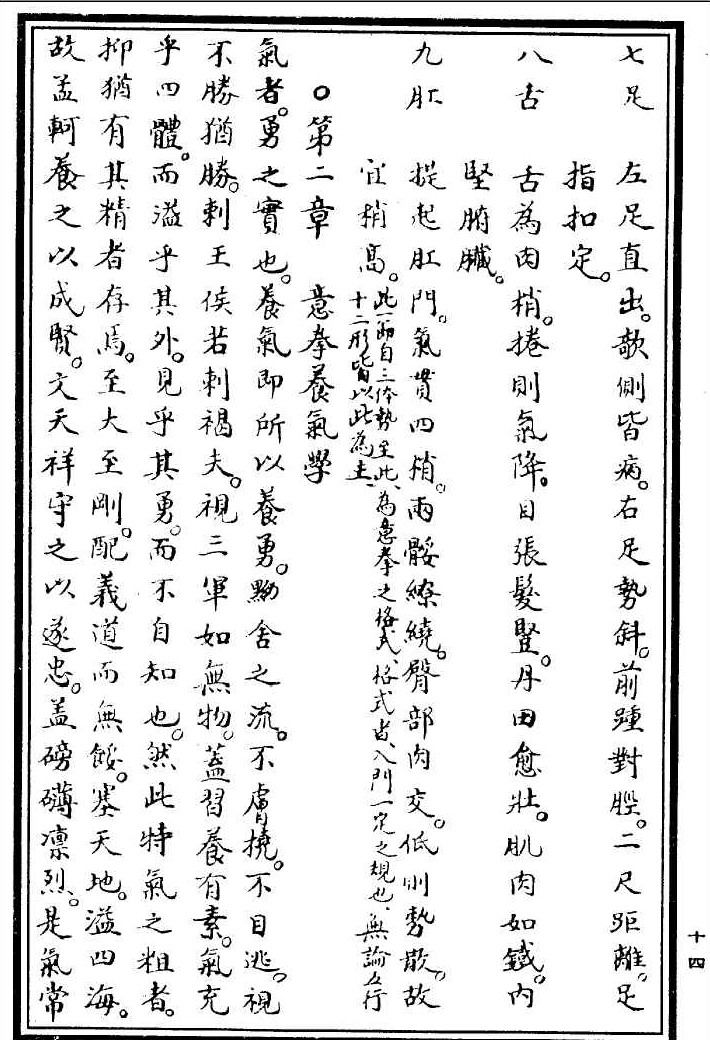 七足　左足直出。欹側皆病。右足勢斜。前踵對脛。二尺距離。足
指扣定。
八舌　舌為肉梢。捲則氣降。目張髮豎。丹田愈壯。肌肉如鐵。內
堅腑臟。
九肛　提起肛門。氣貫四梢。兩骽繚繞。臀部肉交。低則勢散。故
宜稍高。此一節自三体勢至此、為意拳之格式、格式者、入門一定之規也、無論五行
十二形皆以此為主、
○第二章　意拳養氣學
氣者。勇之實也。養氣即所以養勇。黝舍之流。不膚撓。不目逃。視
不勝猶勝。刺王侯若刺褐夫。視三軍如無物。蓋習養有素。氣充
乎四體。而溢乎其外。見乎其勇。而不自知也。然此特氣之粗者。
抑猶有其精者存焉。至大至剛。配義道而無餒。塞天地。溢四海。
故孟軻養之以成賢。文天祥守之以遂忠。蓋磅礴凛烈、是氣常
十四